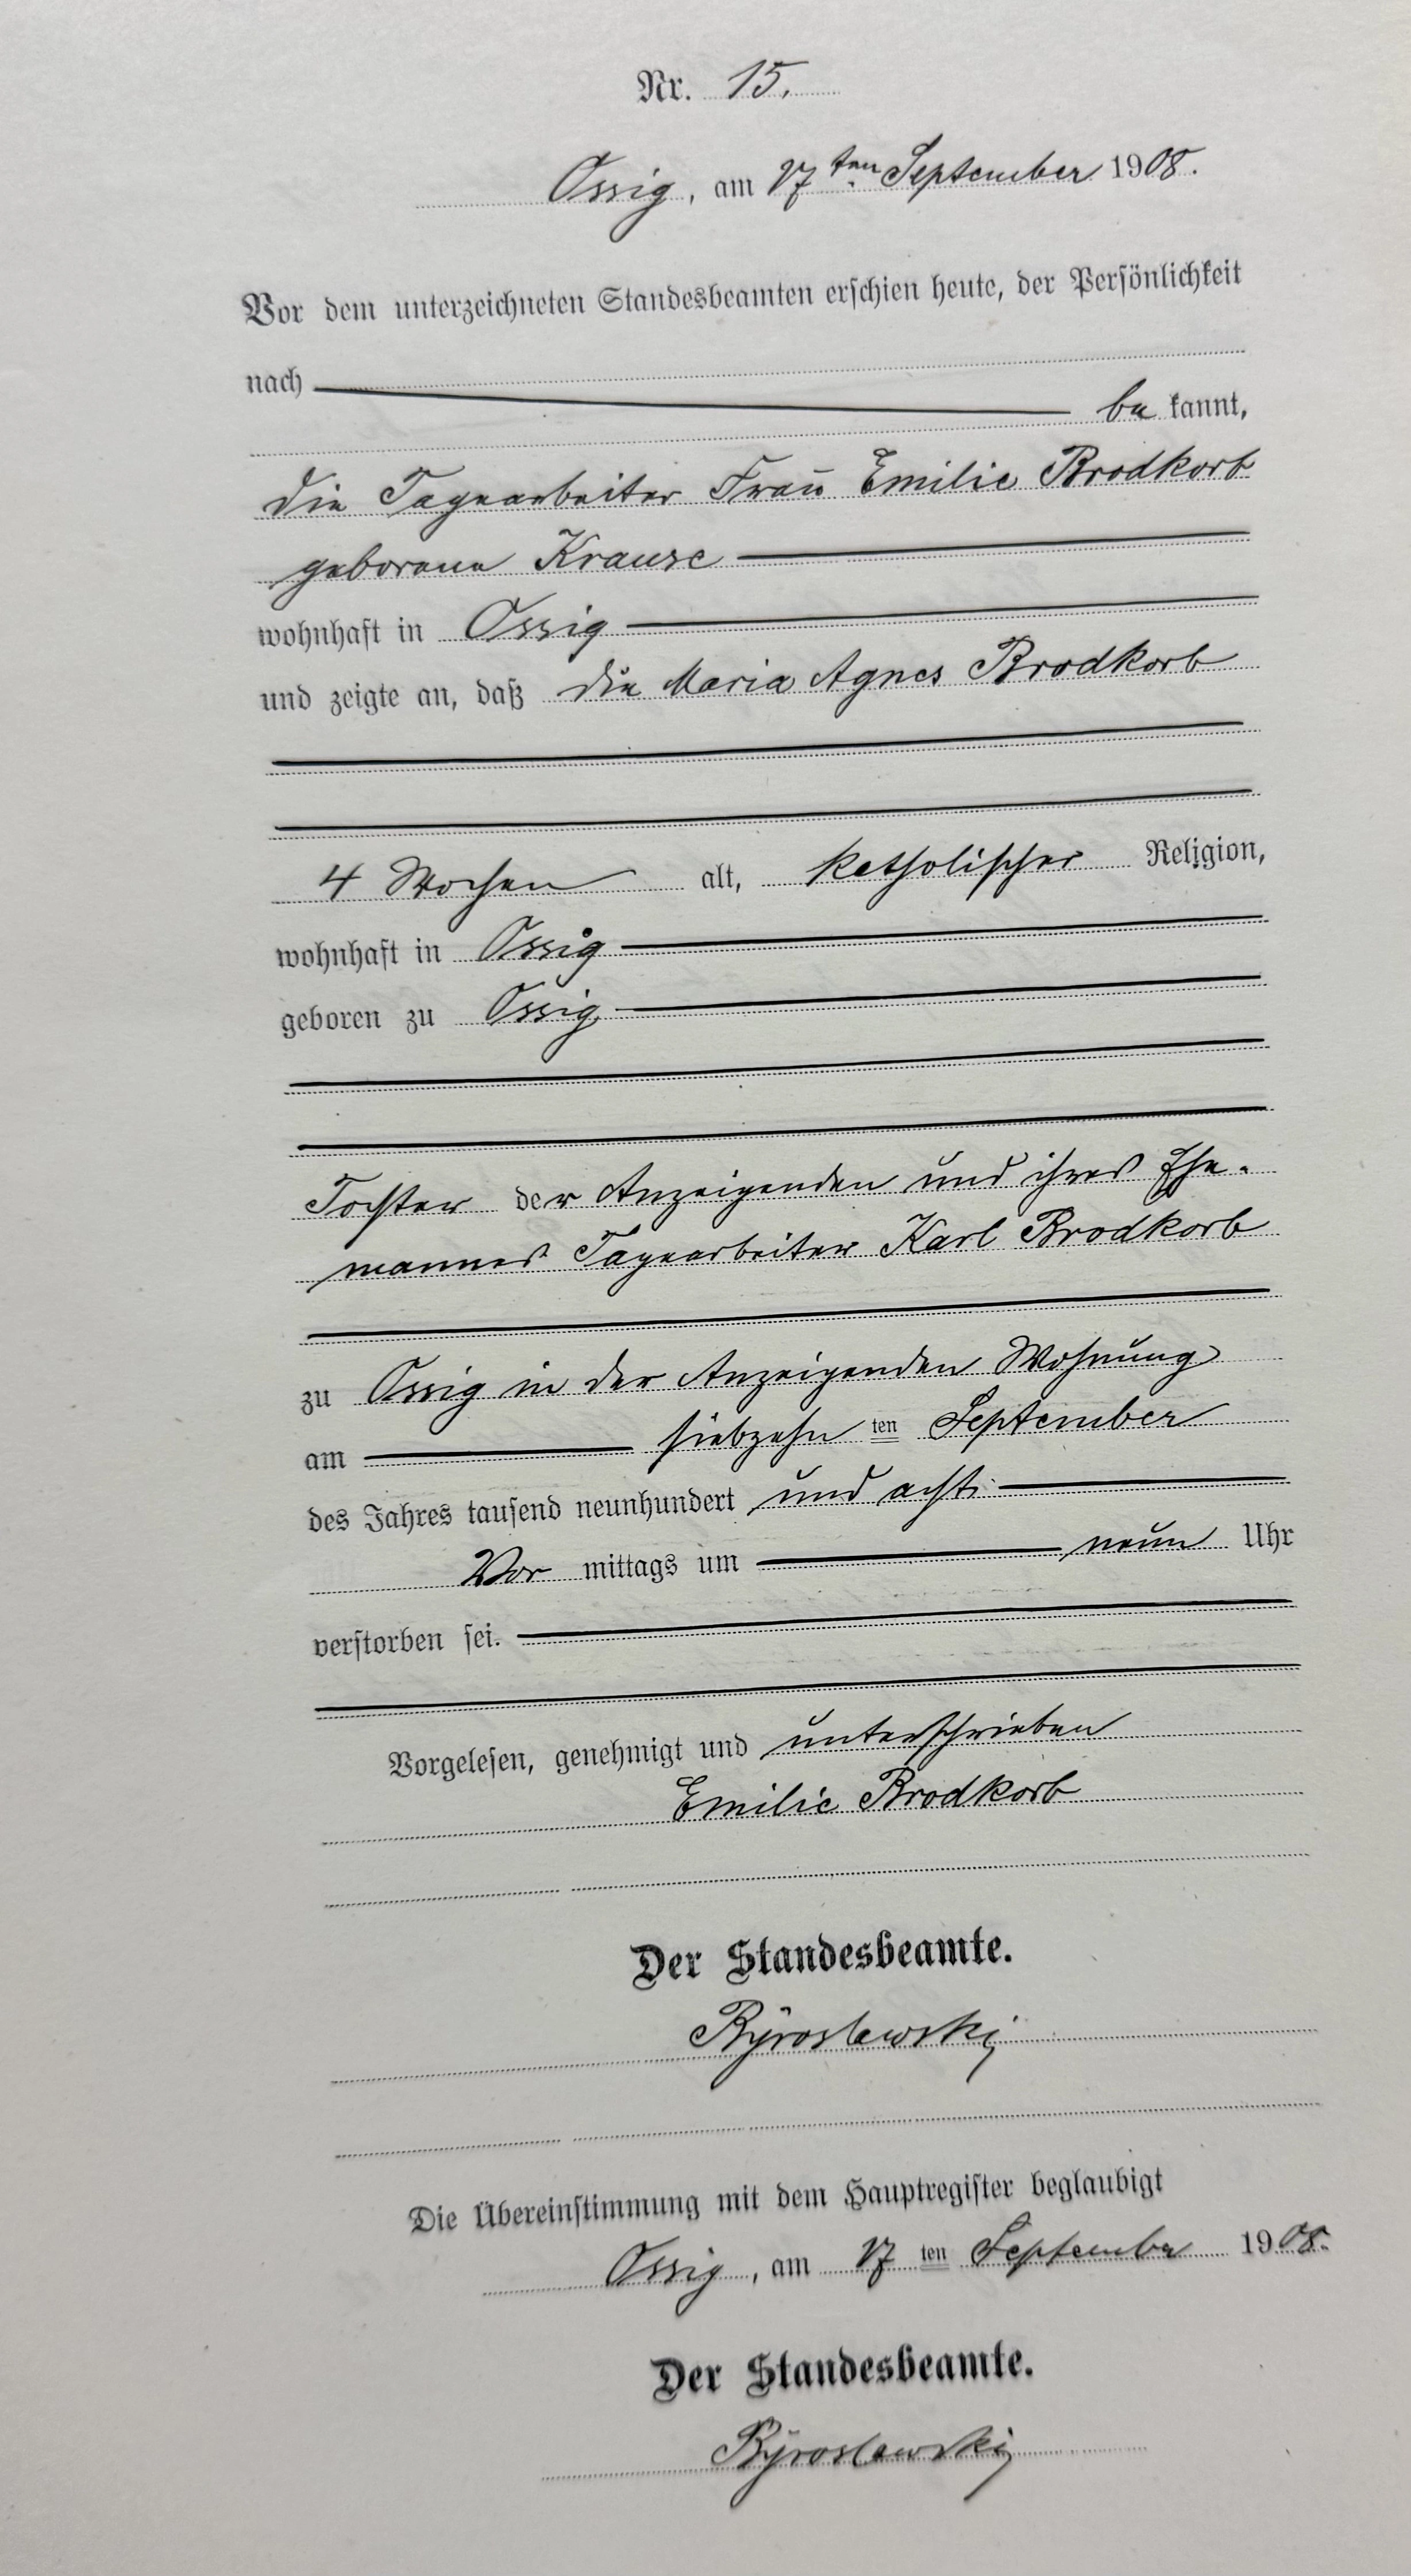 Nr. 15.
Ossig, am 17ten September 1908.
Vor dem unterzeichneten Standesbeamten erschien heute, der Persönlichkeit
nach
be kannt,
die Tagearbeiter Frau Emilie Brodkorb
geborene Krause
wohnhaft in Ossig
und zeigte an, daß die Maria Agnes Brodkorb
4 Wochen alt, katholischer Religion,
wohnhaft in Ossig
geboren zu Ossig
Tochter der Anzeigenden und ihres Ehe-
mannes Tagearbeiter Karl Brodkorb
zu Ossig in der Anzeigenden Wohnung
am siebzehn ten September
des Jahres tausend neunhundert und acht
Vor mittags um neun Uhr
verstorben sei.
Vorgelesen, genehmigt und unterschrieben
Emilie Brodkorb
Der Standesbeamte.
Die Übereinstimmung mit dem Hauptregister beglaubigt
Ossig, am 17 ten September 1908.
Der Standesbeamte.